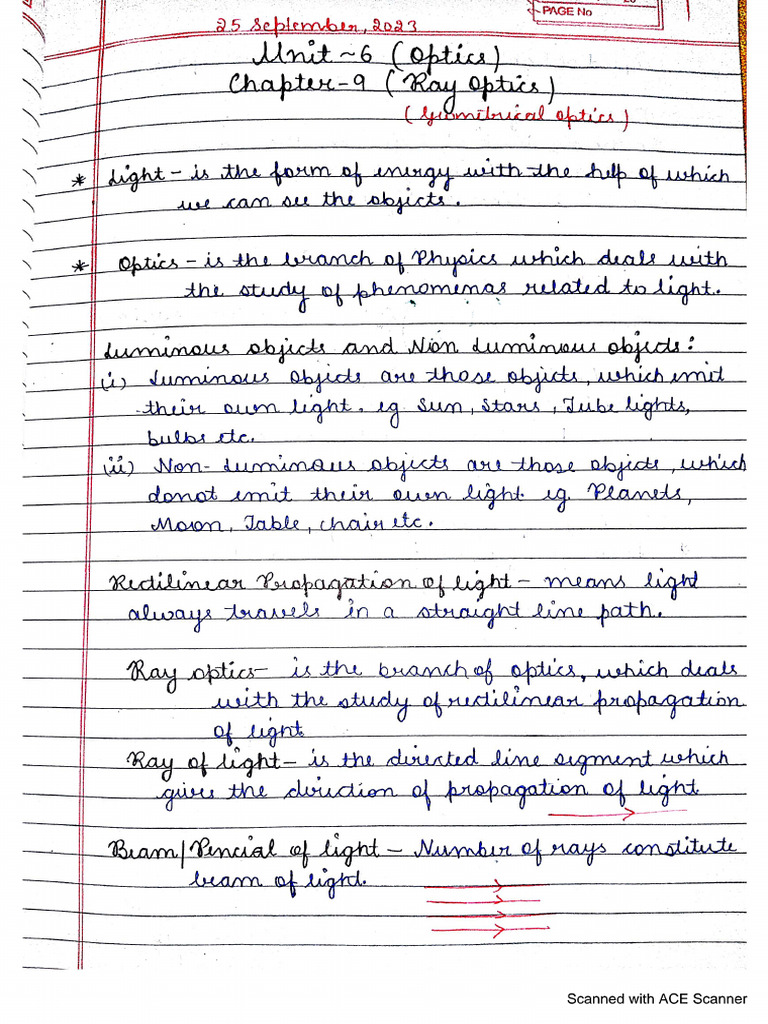 PAGE No
25 September, 2023
Unit ~ 6 (Optics)
Chapter-9 (Ray Optics)
(Geometrical optics)
* Light - is the form of energy with the help of which
we can see the objects.
* Optics - is the branch of Physics which deals with
the study of phenomenas related to light.
Luminous objects and Non Luminous objects:
(i) Luminous objects are those objects, which emit
their own light. eg Sun, Stars, Tube lights,
bulbs etc.
(ii) Non-Luminous objects are those objects, which
donot emit their own light eg. Planets,
Moon, Table, chair etc.
Rectilinear Propagation of light - means light
always travels in a straight line path.
Ray optics - is the branch of optics, which deals
with the study of rectilinear propagation
of light
Ray of light - is the directed line segment which
gives the direction of propagation of light
Beam/Pencial of light - Number of rays constitute
beam of light.
Scanned with ACE Scanner